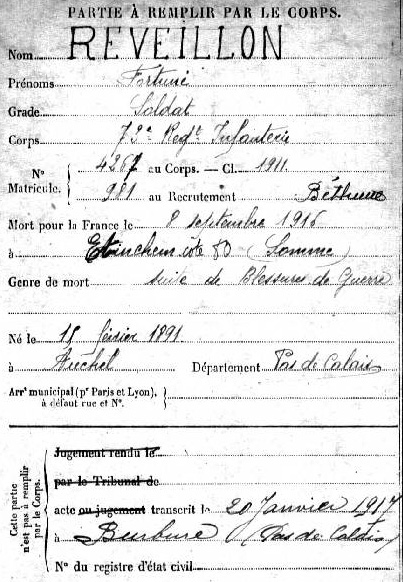 PARTIE À REMPLIR PAR LE CORPS.
Nom REVEILLON
Prénoms Fortuné
Grade Soldat
Corps 73e Regt Infanterie
4267 au Corps. — Cl. 1911
N° Matricule. 981 au Recrutement Béthune
Mort pour la France le 8 septembre 1916
à Etinchem cote 80 (Somme)
Genre de mort suite de Blessures de Guerre
Né le 15 février 1891
à Auchel Département Pas de Calais
Arrt municipal (pr Paris et Lyon),
à défaut rue et N°.
Cette partie n'est pas à remplir par le Corps.
Jugement rendu le
par le Tribunal de
acte ou jugement transcrit le 20 Janvier 1917
à Burbure (Pas de Calais)
N° du registre d'état civil